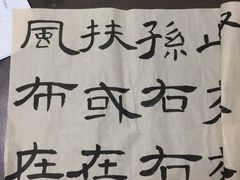 孫右右
扶或在
風布在